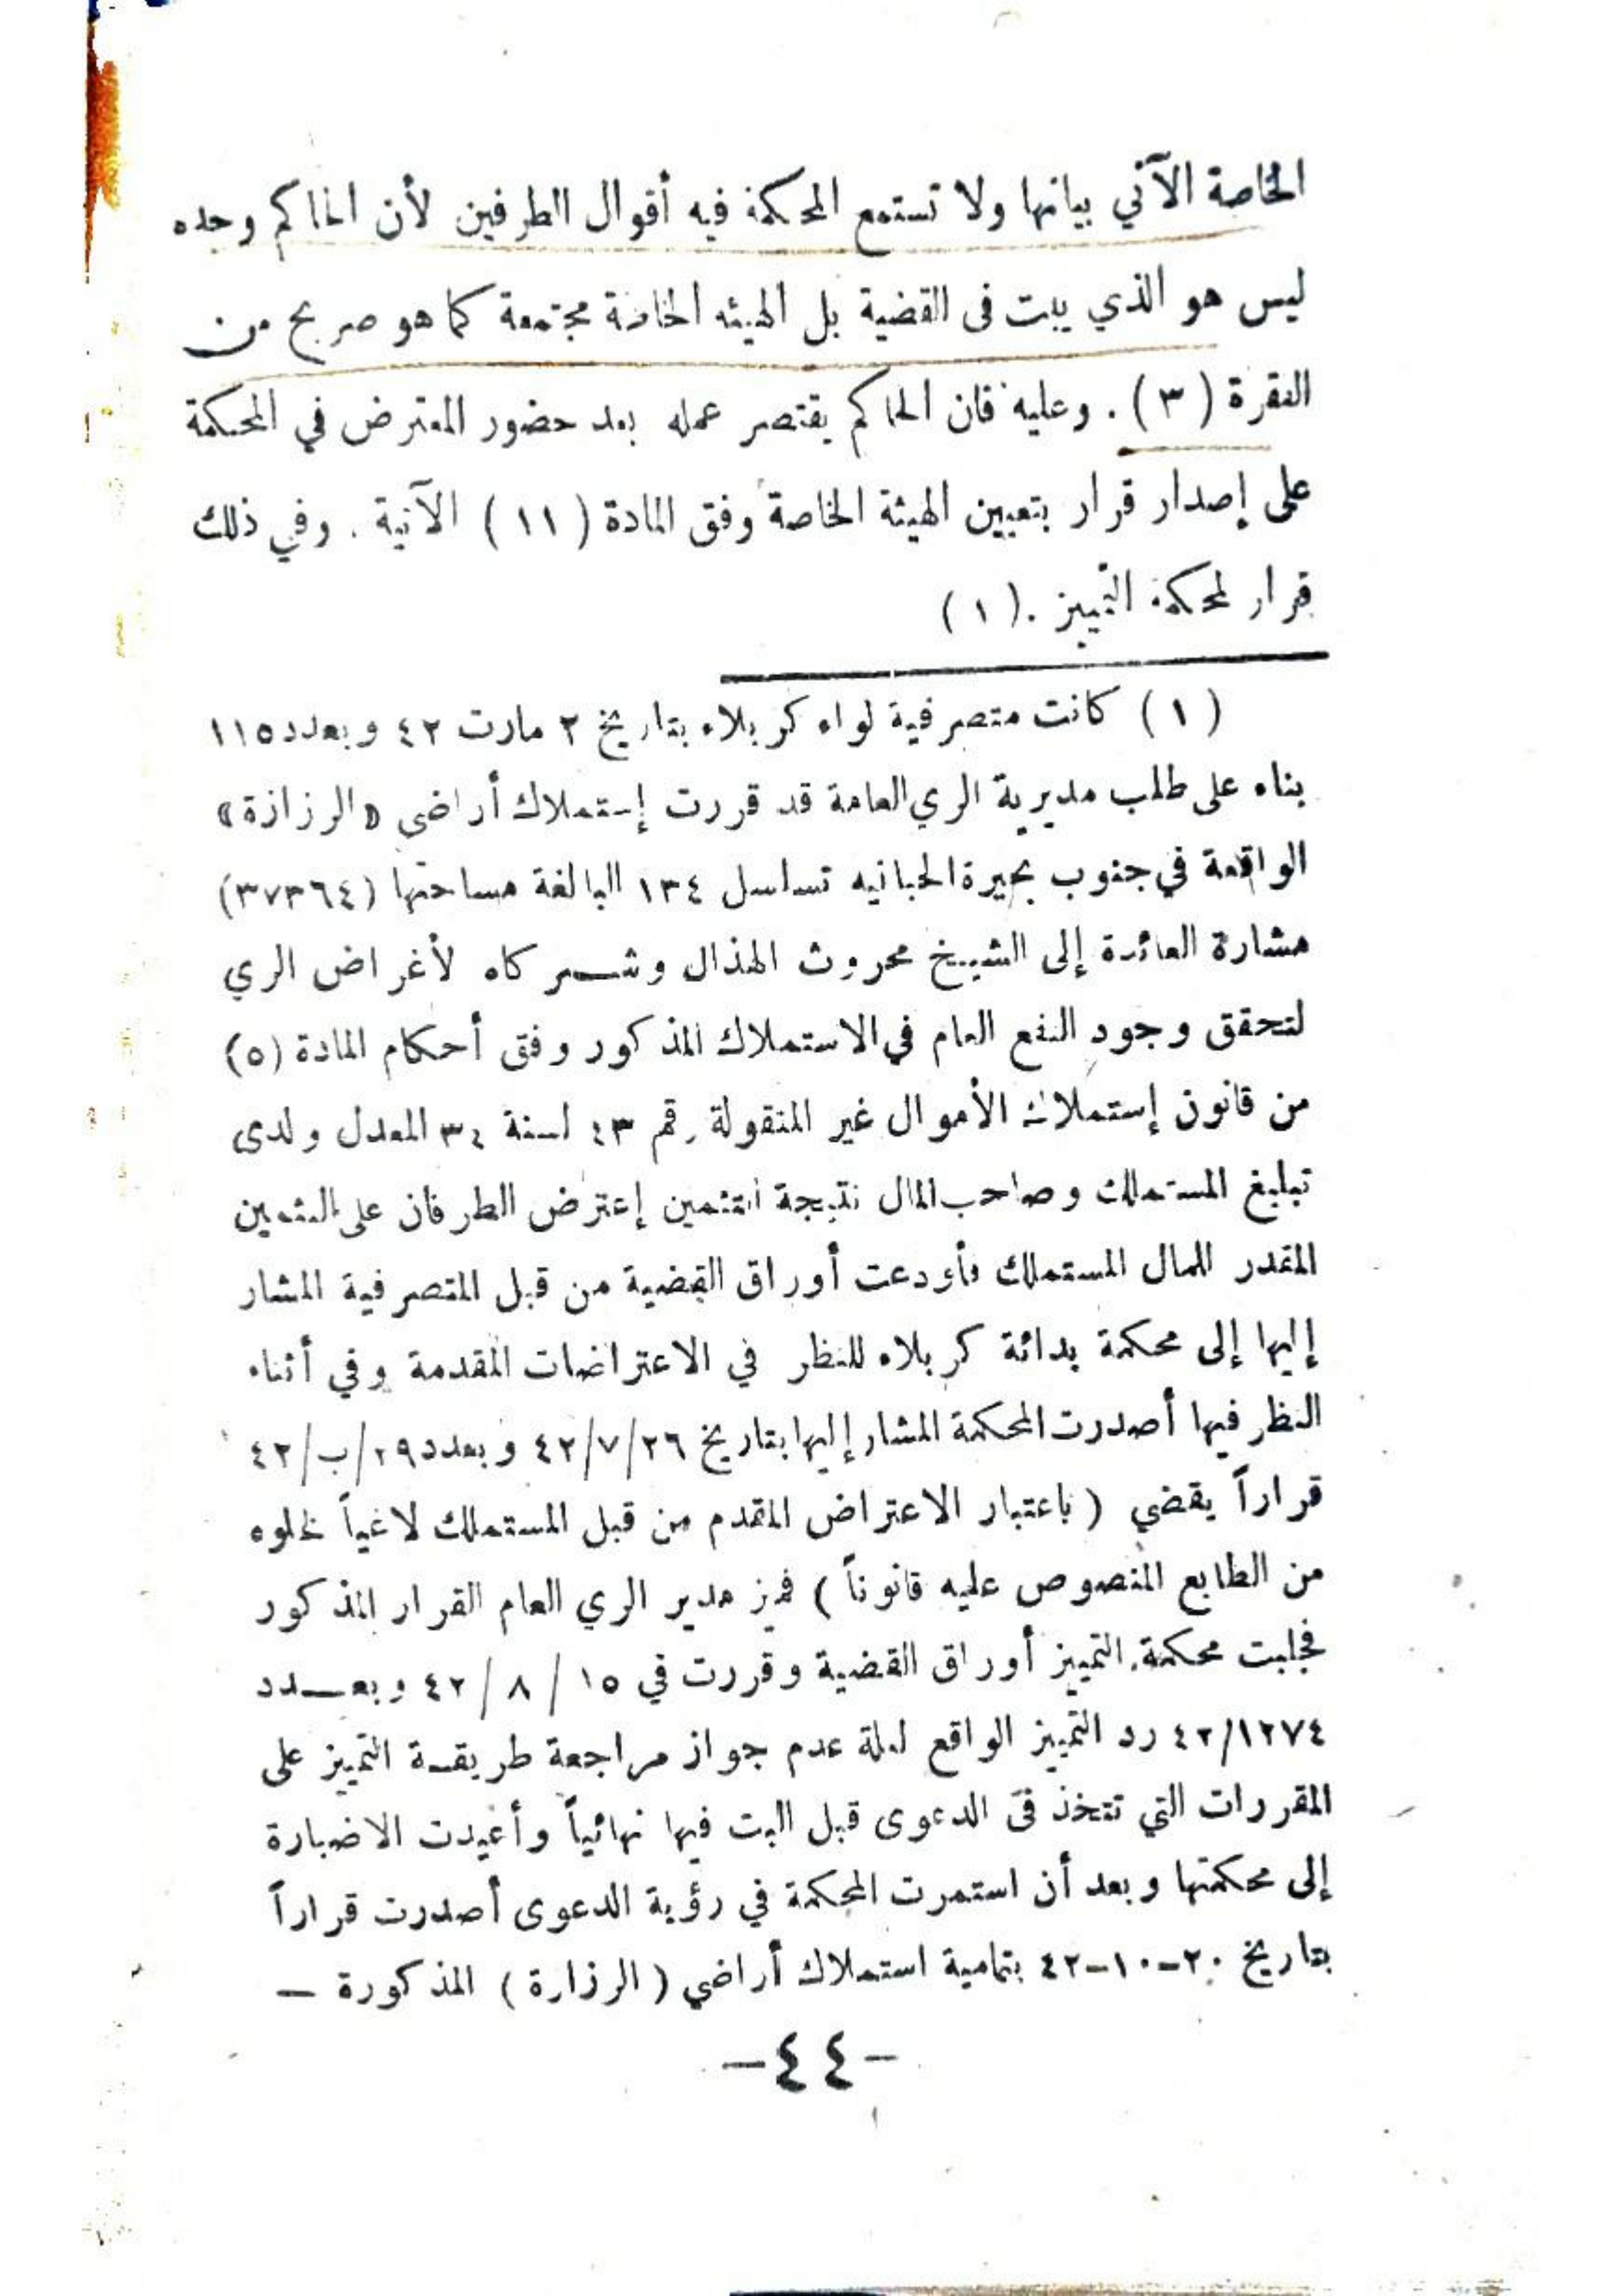 الخاصة الآتي بيانها ولا تستمع المحكمة فيه أقوال الطرفين لأن الحاكم وحده
ليس هو الذي يبت فى القضية بل الهيئه الخاصة مجتمعة كما هو صريح من
الفقرة (٣) . وعليه فان الحاكم يقتصر عمله بعد حضور المعترض في المحكمة
على إصدار قرار بتعيين الهيئة الخاصة وفق المادة (١١) الآتية . وفي ذلك
قرار لمحكمة التمييز . (١)
(١) كانت متصرفية لواء كربلاء بتاريخ ٢ مارت ٤٢ وبعدد ١١٥
بناء على طلب مديرية الري العامة قد قررت إستملاك أراضى «الرزازة»
الواقعة في جنوب بحيرة الحبانيه تسلسل ١٣٤ البالغة مساحتها (٣٧٣٦٤)
مشارة العائدة إلى الشيخ محروث الهذال وشركاه لأغراض الري
لتحقق وجود النفع العام في الاستملاك المذكور وفق أحكام المادة (٥)
من قانون إستملاك الأموال غير المنقولة رقم ٤٣ لسنة ٣٤ المعدل ولدى
تبليغ المستملك وصاحب المال نتيجة التثمين إعترض الطرفان على التثمين
المقدر للمال المستملك فأودعت أوراق القضية من قبل المتصرفية المشار
إليها إلى محكمة بدائة كربلاء للنظر في الاعتراضات المقدمة وفي أثناء
النظر فيها أصدرت المحكمة المشار إليها بتاريخ ٤٢/٧/٢٦ وبعدد ٢٩/ب/٤٢
قراراً يقضي (باعتبار الاعتراض المقدم من قبل المستملك لاغياً لخلوه
من الطابع المنصوص عليه قانوناً) فميز مدير الري العام القرار المذكور
فجلبت محكمة التمييز أوراق القضية وقررت في ١٥ / ٨ / ٤٢ وبعـــدد
٤٢/١٢٧٤ رد التمييز الواقع لعلة عدم جواز مراجعة طريقة التمييز على
المقررات التي تتخذ في الدعوى قبل البت فيها نهائياً وأعيدت الاضبارة
إلى محكمتها وبعد أن استمرت المحكمة في رؤية الدعوى أصدرت قراراً
بتاريخ ٢٠-١٠-٤٢ بتمامية استملاك أراضي (الرزارة) المذكورة —
-٤٤-